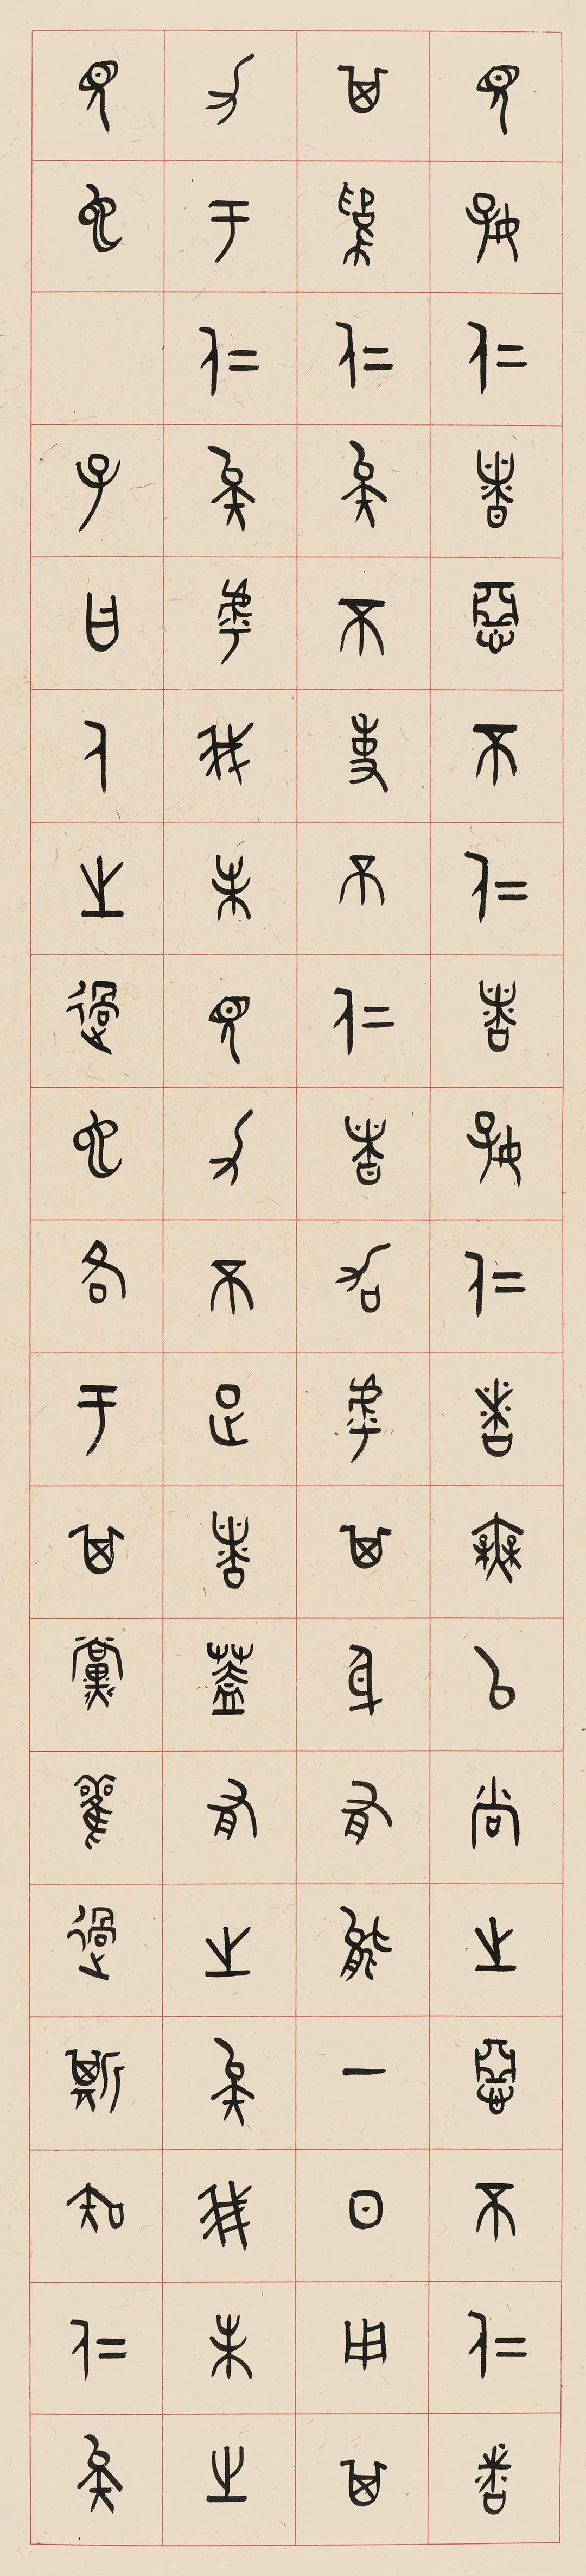 見好仁者惡不仁者好仁者無以尚之惡不仁者
其為仁矣不使不仁者加乎其身有能一日用其
力于仁矣乎我未見力不足者蓋有之矣我未之
見也 子曰人之過也各于其黨觀過斯知仁矣